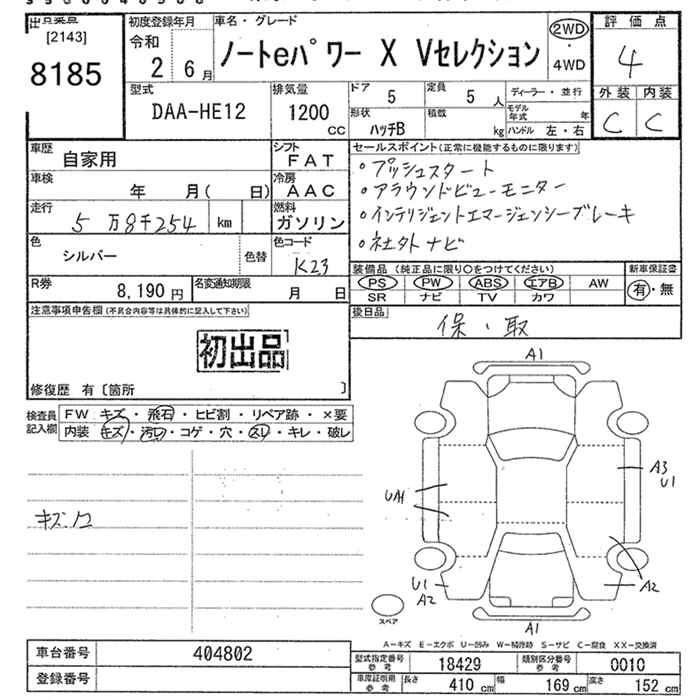 出品業店 初度登録年月 車名・グレード 評価点
[2143]
8185
令和
2 6月
ノートeパワー X Vセレクション
2WD
・
4WD
4
型式 排気量 ドア 5 定員 5人 ディーラー・並行 外装 内装
DAA-HE12 1200cc 形状 ハッチB 積載 kg モデル年式 年
ハンドル 左・右 C C
車歴 自家用 シフト FAT
セールスポイント(正常に機能するものに限ります)
車検 年 月( 日) 冷房 AAC
走行 5万8千254 km 燃料 ガソリン
色 シルバー 色替 色コード K23
・プッシュスタート
・アラウンドビューモニター
・インテリジェントエマージェンシーブレーキ
・社外ナビ
装備品(純正品に限り○をつけてください) 新車保証書
PS PW ABS エアB AW 有・無
SR ナビ TV カワ
R券 8,190円 名変通知期限 月 日
後日品 保・取
注意事項申告欄(不具合内容等は具体的に記入して下さい)
初出品
修復歴 有〔箇所 〕
検査員記入欄 FW キズ・飛石・ヒビ割・リペア跡・×要
内装 キズ・汚れ・コゲ・穴・スレ・キレ・破レ
A1
A3
U1
UA1
U1
A2
A2
A1
スペア
A−キズ E−エクボ U−凹み W−補修跡 S−サビ C−腐食 XX−交換済
車台番号 404802
登録番号
型式指定番号参考 18429 類別区分番号参考 0010
車庫証明用参考 長さ 410cm 幅 169cm 高さ 152cm